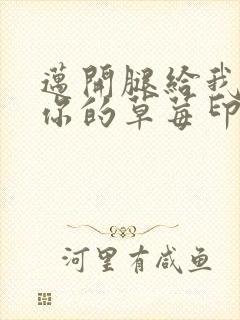 邁開腿給我
你的草莓印
河里有咸鱼